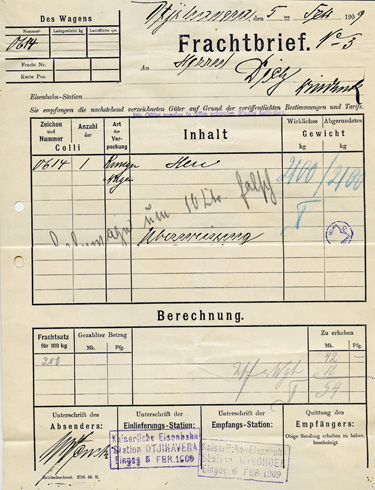 Des Wagens
Nummer Ladegewicht kg Ladefläche qm
0614
Fracht Nr.
Karte Pos.
Otjihavera den 5 ten Feb 1909
Frachtbrief. No 3
An Herrn
Dietz
Windhuk
Eisenbahn-Station
Sie empfangen die nachstehend verzeichneten Güter auf Grund der veröffentlichten Bestimmungen und Tarife.
Zeichen und Nummer Anzahl der Art der Verpackung Inhalt Wirkliches Abgerundetes
Colli Gewicht
kg kg
0614 1 Heu 2100 2100
um 10 Ltr. falsch
Überweisung
Berechnung.
Frachtsatz für 100 kg Gezahlter Betrag Zu erheben
Mk. Pfg. Mk. Pfg.
200 42 —
54
Unterschrift des Absenders: Unterschrift der Einlieferungs-Station: Unterschrift der Empfangs-Station: Quittung des Empfängers:
Obige Sendung erhalten zu haben, bescheinigt
Kaiserliche Eisenbahn
Station OTJIHAVERA
Eingog 5 FBR.1909
Kaiserliche Eisenbahn
Station WINDHUK
Eingog 6 FBR.1909